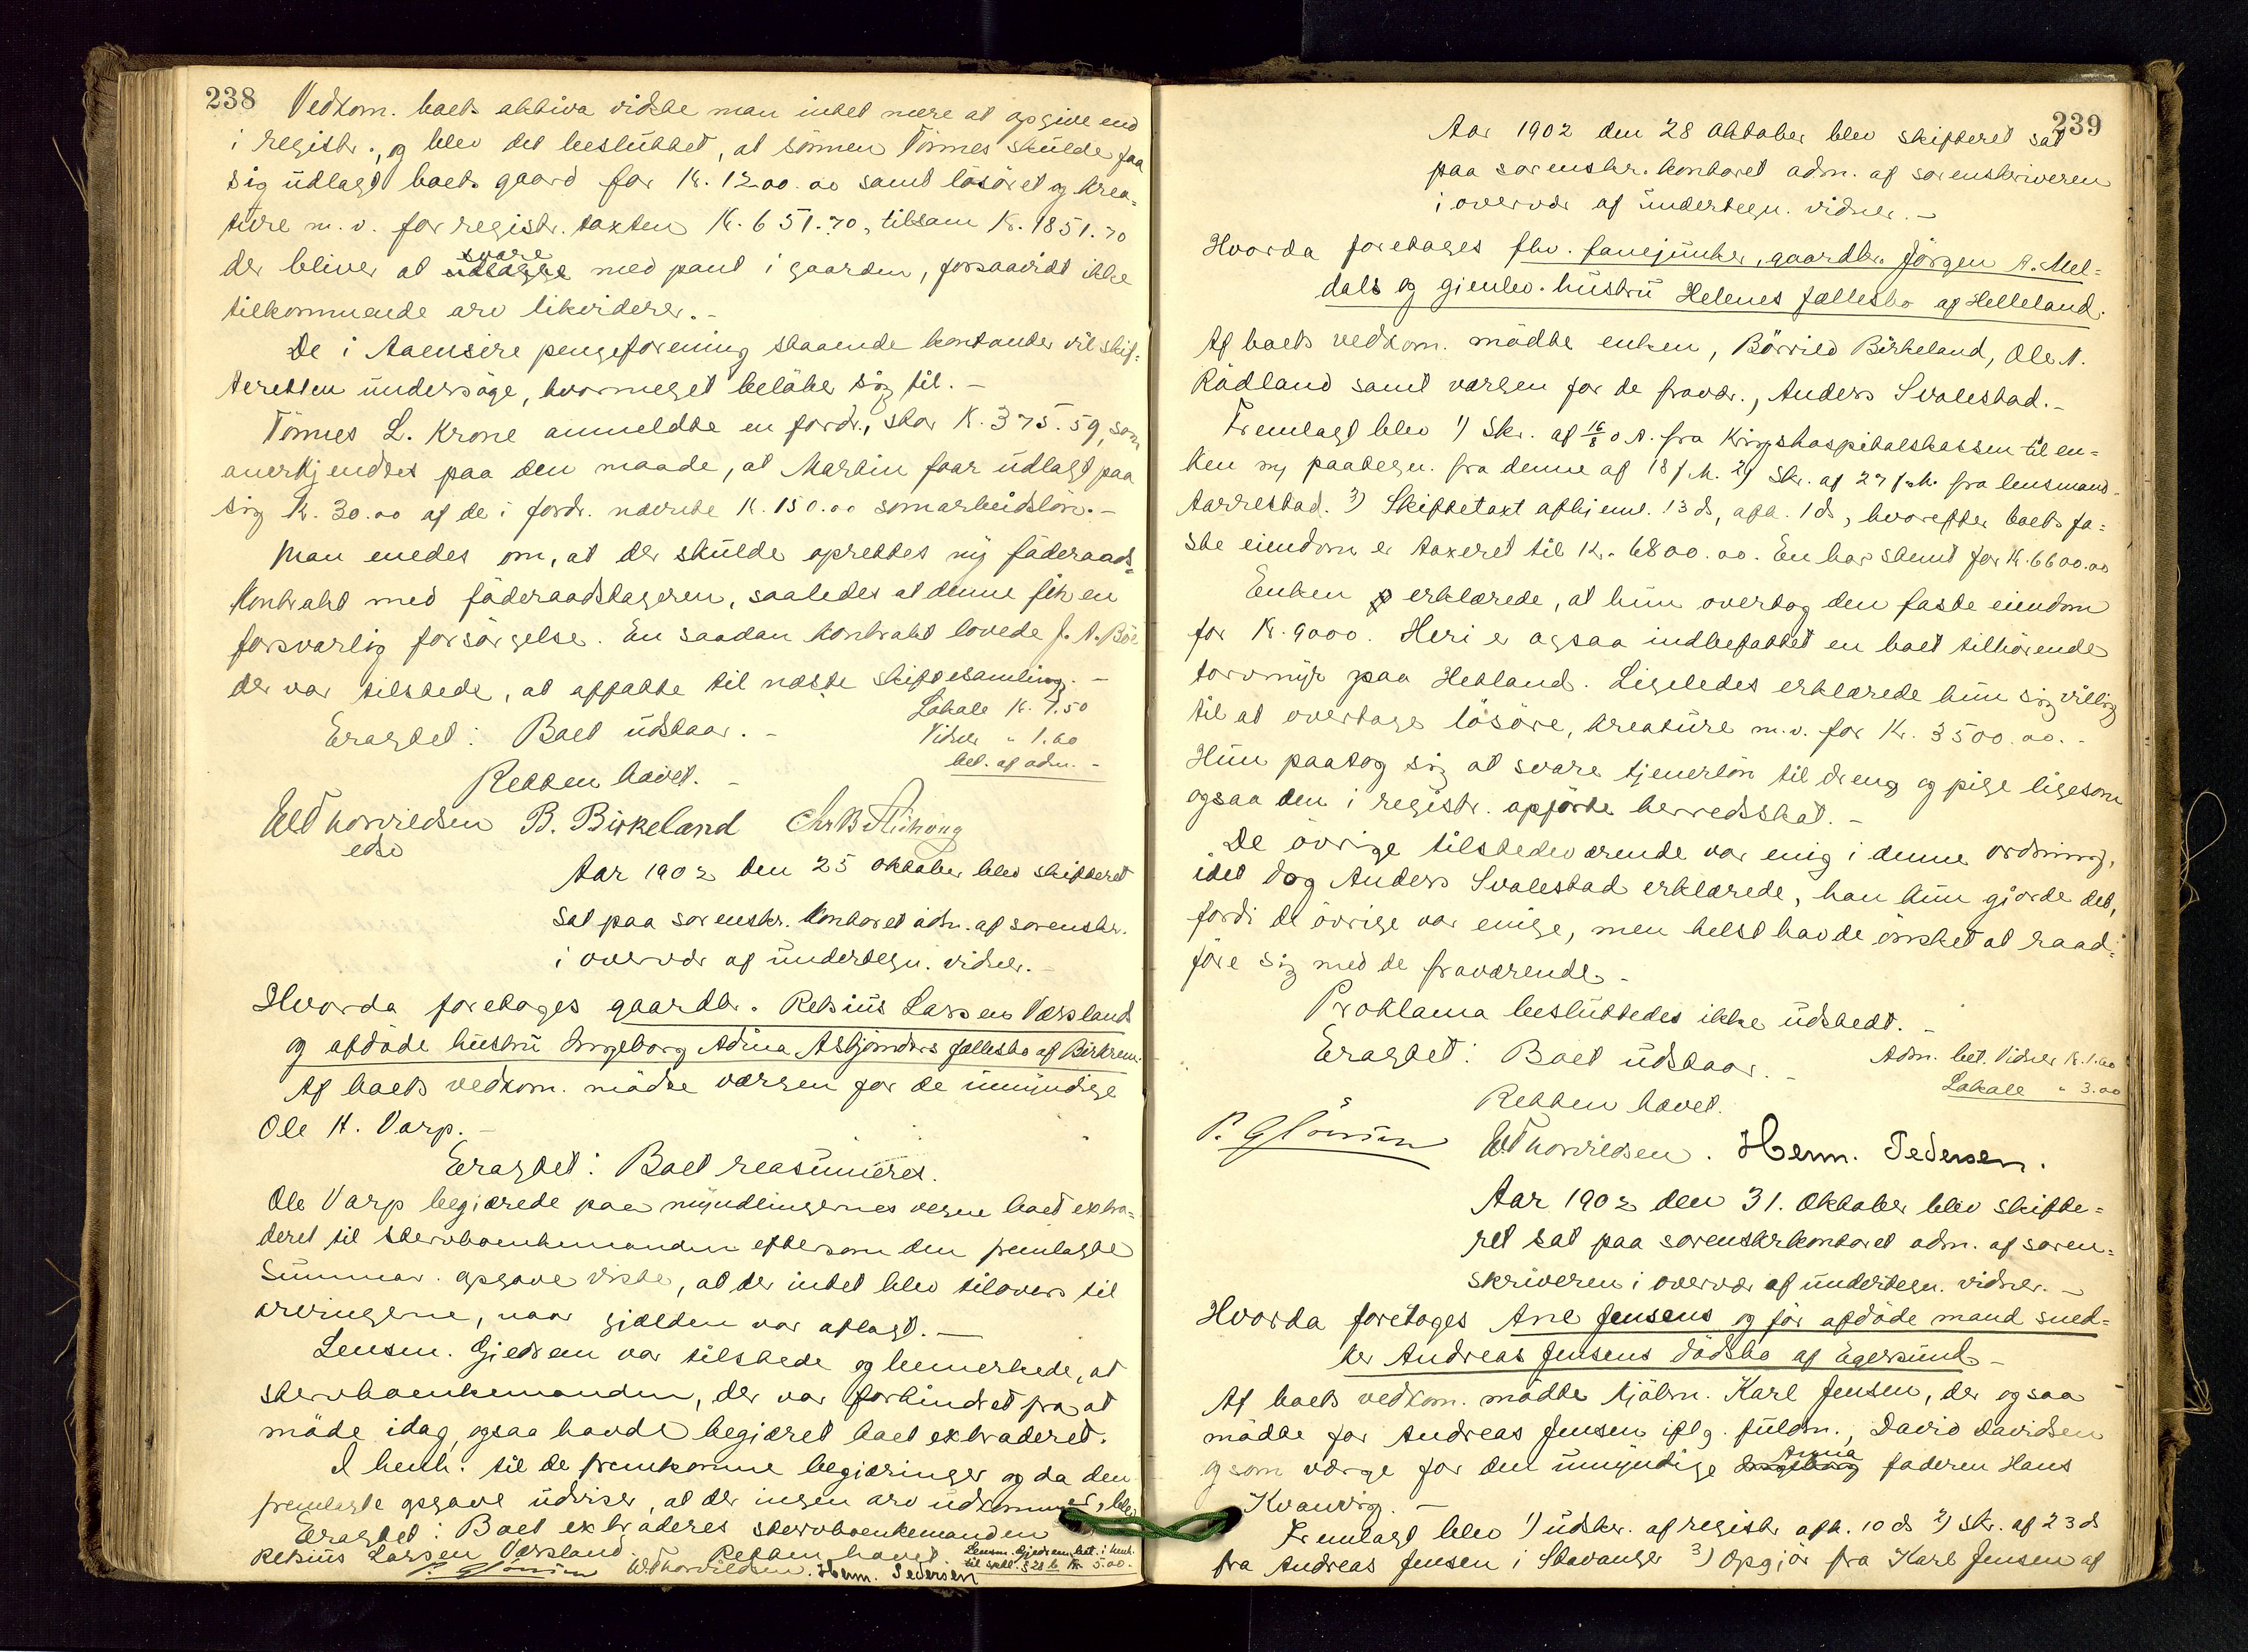 238
Vedkom. boets aktiva vidste man intet mere at opgive end
i registr., og blev det besluttet, at sönnen Tönnes skulde faa
sig udlagt boets gaard for K. 1200.00 samt lösöret og krea-
ture m. v. for registr. taxten K. 651.70, tilsam K. 1851.70
der bliver at svare med pant i gaarden, forsaavidt ikke
tilkommende arv likviderer. -
De i Aaensire pengeforening staaende kontanter vil skif-
teretten undersöge, hvormeget belöber sig til. -
Tönnes L. Krone anmeldte en fordr., stor K. 375.59, som
anerkjendtes paa den maade, at Martin faar udlagt paa
sig K. 30.00 af de i fordr. nævnte K. 150.00 som arbeidslön. -
Man enedes om, at der skulde oprettes ny föderaads-
kontrakt med föderaadstageren, saaledes at denne fik en
forsvarlig forsörgelse. En saadan kontrakt lovede J. A.
der var tilstede, at affatte til næste skiftesamling. -
Eragtet: Boet udstaar. -
Lokale K. 7.50
Vidner " 1.60
bet. af adm. -
Retten hævet. -
WThorvildsen B. Birkeland Chr B
edsv
Aar 1902 den 25 oktober blev skifteret
sat paa sorenskr. kontoret adm. af sorenskr.
i overvær af undertegn. vidner. -
Hvorda foretages gaardbr. Retsius LarsenVærsland
og afdöde hustru Ingeborg Adina Asbjörnsdrs fællesbo af Birkrem.
Af boets vedkom. mödte værgen for de umyndige
Ole H. Varp. -
Eragtet: Boet reasumeres.
Ole Varp begjærede paa myndlingernes vegne boet extra-
deret til stervboenkemanden eftersom den fremlagte
Summar. opgave viste, at der intet blev tilovers til
arvingerne, naar gjælden var aflagt. -
Lensm. Gjedrem var tilstede og bemerkede, at
stervboenkemanden, der var forhindret fra at
möde idag, ogsaa havde begjæret boet extraderet.
I henh. til de fremkomne begjæringer og da den
fremlagte opgave udviser, at der ingen arv udkommer, blev
Eragtet: Boet extraderes stervboenkemanden
Retsius Larsen Værsland. Retten hævet.
Lensm. Gjedrem bet. i henh.
til sptl. § 28 b K. 5.00.
WThorvildsen. Herm. Pedersen
239
Aar 1902 den 28 oktober blev skifteret sat
paa sorenskr. kontoret adm. af sorenskriveren
i overvær af undertegn. vidner. -
Hvorda foretages fhv. fanejunker, gaardbr. Jörgen A. Mel-
dals og gjenlev. hustru Helenes fællesbo af Helleland.
Af boets vedkom. mödte enken, Börrild Birkeland, Ole N.
Rödland samt værgen for de fravær., Anders Svalestad. -
Fremlagt blev 1) Skr. af 16/8 d. A. fra Krigshospitalskassen til en-
ken m/ paategn. fra denne af 18 f. M. 2) Skr. af 27 f. M. fra lensmand
Aarrestad. 3) Skiftetaxt afhjeml. 13 ds, afh. 1 ds, hvorefter boets fa-
ste eiendom er taxeret til K. 6800.00. En har stemt for K. 6600.00
Enken erklærede, at hun overtog den faste eiendom
for K. 9000. Heri er ogsaa indbefattet en boet tilhörende
torvmyr paa Hetland. Ligeledes erklærede hun sig villig
til at overtage lösöre, kreature m. v. for K. 3500.00. -
Hun paatog sig at svare tjenerlön til dreng og pige ligesom
ogsaa den i registr. opförte herredsskat. -
De övrige tilstedeværende var enig i denne ordning,
idet dog Anders Svalestad erklærede, han kun gjorde det,
fordi de övrige var enige, men helst havde önsket at raad-
före sig med de fraværende. -
Proklama besluttedes ikke udstedt. -
Eragtet: Boet udstaar. -
Adm. bet. Vidner K. 1.60
Lokale " 3.00
Retten hævet.
WThorvildsen. Herm. Pedersen.
Aar 1902 den 31. oktober blev skifte-
ret sat paa sorenskrkontoret adm. af soren-
skriveren i overvær af undertegn. vidner. -
Hvorda foretages Ane Jensens og för afdöde mand sned-
ker Andreas Jensens dödsbo af Egersund -
Af boets vedkom. mödte kjöbm. Karl Jensen, der ogsaa
mödte for Andreas Jensen iflg. fuldm., David Davidsen
og som værge for den umyndige Anna faderen Hans
Kvanvig. -
Fremlagt blev 1) udskr. af registr. afh. 10 ds 2) Skr. af 23 ds
fra Andreas Jensen i Stavanger 3) Opgjör fra Karl Jensen af